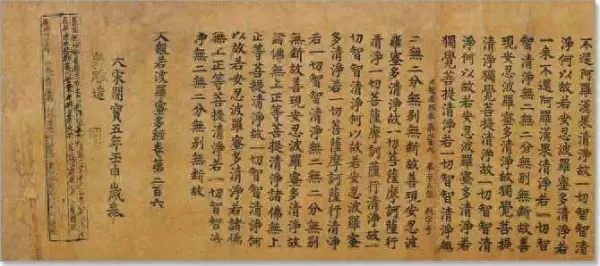 不還阿羅漢果清淨若一切智智清
淨何以故若安忍波羅蜜多清淨若
一來不還阿羅漢果清淨若一切智
智清淨無二無二分無別無斷故善
現安忍波羅蜜多清淨故獨覺菩提
清淨獨覺菩提清淨故一切智智清
淨何以故若安忍波羅蜜多清淨若
獨覺菩提清淨若一切智智清淨無
二無二分無別無斷故善現安忍波
羅蜜多清淨故一切菩薩摩訶薩行
清淨一切菩薩摩訶薩行清淨故一
切智智清淨何以故若安忍波羅蜜
多清淨若一切菩薩摩訶薩行清淨
若一切智智清淨無二無二分無別
無斷故善現安忍波羅蜜多清淨故
諸佛無上正等菩提清淨諸佛無上
正等菩提清淨故一切智智清淨何
以故若安忍波羅蜜多清淨若諸佛
無上正等菩提清淨若一切智智清
淨無二無二分無別無斷故
大般若波羅蜜多經卷第二百六
大宋開寶五年壬申歲奉
勅雕造